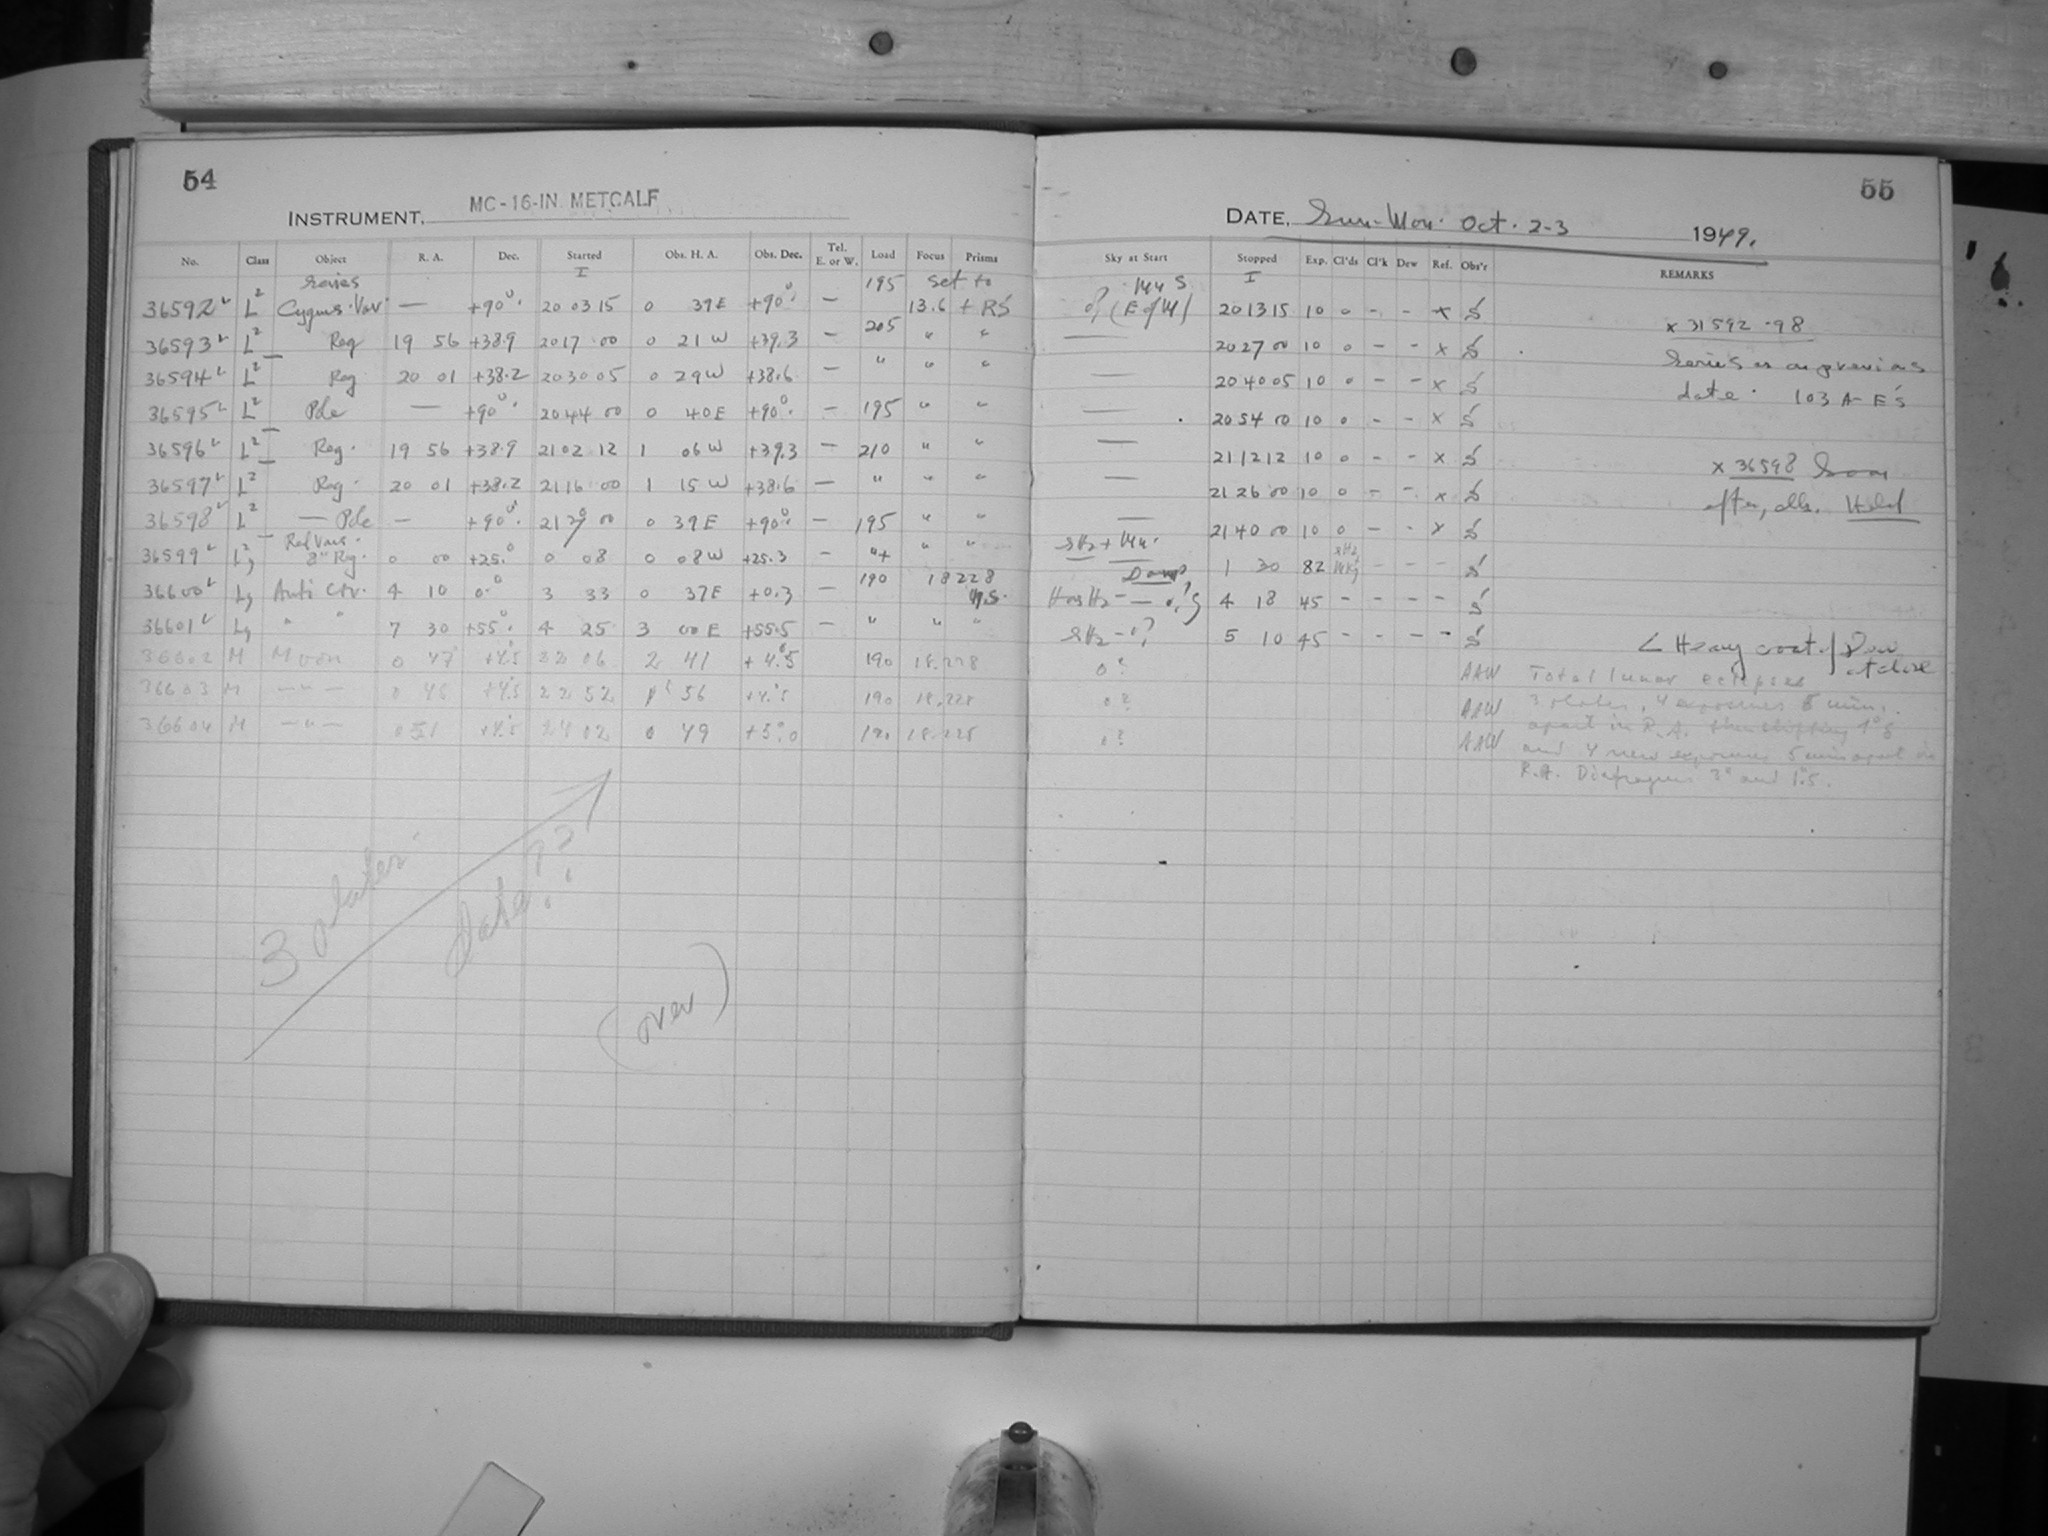 54
INSTRUMENT, MC-16-IN. METCALF
No. Class Object R. A. Dec. Started Obs. H. A. Obs. Dec. Tel. E. or W. Load Focus Prisms
I
Series 195 set to
36592 L2 Cygnus Var. — +90°. 20 03 15 0 39E +90° — 13.6 + RS
36593 L2 Reg 19 56 +38.9 20 17 00 0 21 W +39.3 — 205 " "
36594 L2 Reg 20 01 +38.2 20 30 05 0 29W +38.6 — " " "
36595 L2 Pole — +90°. 20 44 00 0 40E +90°. — 195 " "
36596 L2 Reg. 19 56 +38.9 21 02 12 1 06 W +39.3 — 210 " "
36597 L2 Reg. 20 01 +38.2 21 16 00 1 15 W +38.6 — " " "
36598 L2 — Pole — +90°. 21 00 0 39E +90° — 195 " "
36599 8" Reg. 0 00 +25.° 0 08 0 08W +25.3 — " "
36600 Anti Ctr. 4 10 0.° 3 33 0 37E +0.3 — 190 18228
36601 " " 7 30 +55° 4 25 3 00 E +55.5 — " " "
36602 M Moon 0 47 +4.5 22 06 2 41 +4.5 190 18.228
36603 M —"— 0 45 +4.5 22 52 56 +4.5 190 18.228
36604 M —"— 0 51 +4.5 24 02 0 49 +5.0 190 18.228
3 plates
date??
(over)
55
DATE, Sun-Mon. Oct. 2-3 1949.
Sky at Start Stopped Exp. Cl'ds Cl'k Dew Ref. Obs'r REMARKS
I
(E of M) 20 13 15 10 0 - - x S
x 31592-98
— 20 27 00 10 0 - - x S
Series as on previous
— 20 40 05 10 0 - - x S
date. 103 A-E's
— 20 54 00 10 0 - - x S
— 21 12 12 10 0 - - x S
x 36598
— 21 26 00 10 0 - - x S
after, Held
— 21 40 00 10 0 - - x S
1 30 82 - - - S
4 18 45 - - - - S
5 10 45 - - - - S
< Heavy coat of Dew
at close
0? AAW Total lunar eclipses
0? AAW 3 plates, 4 exposures 5 min.
apart in R.A. then shifting 1°
0? AAW and 4 new exposures 5 min apart in
R.A. Diafragms 3" and 1".5.